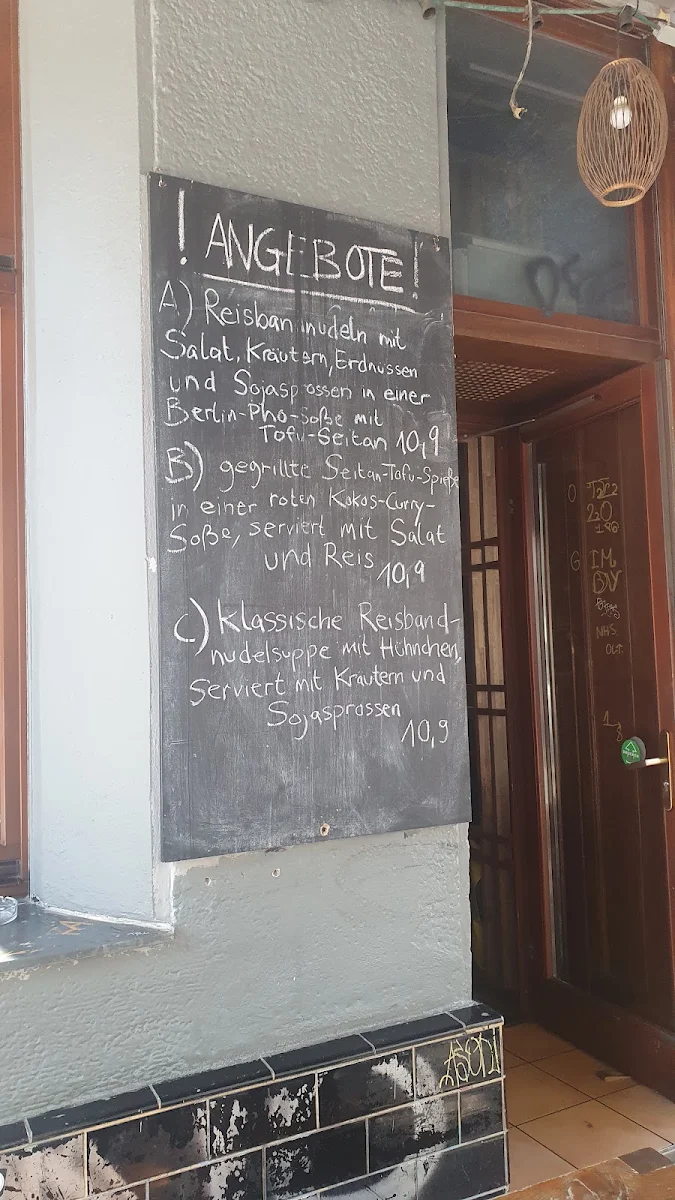 ! ANGEBOTE!
A) Reisbandnudeln mit
Salat, Kräutern, Erdnüssen
und Sojasprossen in einer
Berlin-Pho-Soße mit
Tofu-Seitan 10,9
B) gegrillte Seitan-Tofu-Spieße
in einer roten Kokos-Curry-
Soße, serviert mit Salat
und Reis 10,9
C) klassische Reisband-
nudelsuppe mit Hühnchen,
serviert mit Kräutern und
Sojasprossen
10,9